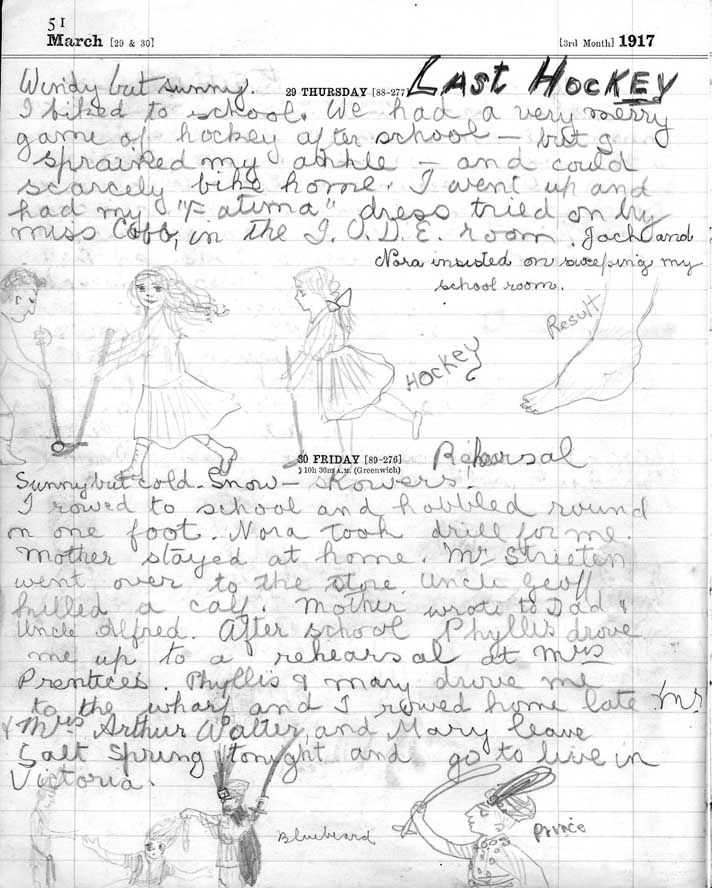 51
March [29 & 30] [3rd Month] 1917
Windy but sunny. 29 THURSDAY [88-277] LAST HOCKEY
I biked to school. We had a very merry
game of hockey after school - but I
sprained my ankle - and could
scarcely bike home. I went up and
had my "Fatima" dress tried on by
miss Cobb, in the I.O.D.E. room. Jack and
Nora insisted on sweeping my
school room.
Result
HOCKEY
30 FRIDAY [89-276] Rehearsal
10h 36m A.M. (Greenwich)
Sunny but cold. Snow - showers.
I rowed to school and hobbled round
on one foot. Nora took drill for me.
Mother stayed at home. Mr Streeten
went over to the store. Uncle Geoff
killed a calf. Mother wrote to Dad &
Uncle Alfred. After school Phyllis drove
me up to a rehearsal at Mrs
Prentices. Phyllis & mary drove me
to the wharf and I rowed home late Mr
& Mrs Arthur Walter, and Mary leave
Salt Spring tonight and go to live in
Victoria.
Bluebeard
Prince